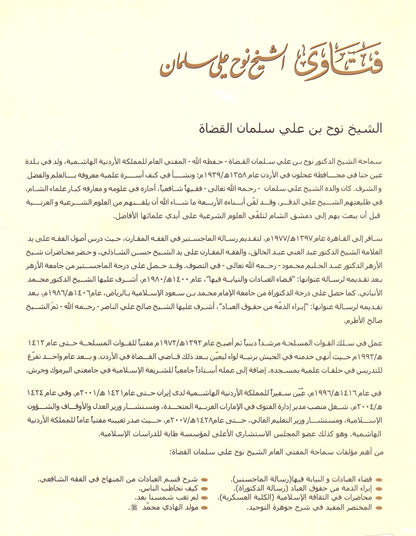 فتاوى الشيخ نوح علي سلمان
الشيخ نوح بن علي سلمان القضاة
سماحة الشيخ الدكتور نوح بن علي سلمان القضاة - حفظه الله - المفتي العام للمملكة الأردنية الهاشمية، ولد في بلدة
عين جنا في محافظة عجلون في الأردن عام ١٣٥٨هـ/١٩٣٩م؛ ونشأ في كنف أسرة علمية معروفة بالعلم والفضل
و الشرف. كان والده الشيخ علي سلمان - رحمه الله تعالى - فقيهاً شافعياً، أجازه في علومه و معارفه كبار علماء الشام،
في طليعتهم الشيخ علي الدقر، وقد لقّن أبناءه الأربعة ما شاء الله أن يلقنهم من العلوم الشرعية و العربية
قبل أن يبعث بهم إلى دمشق الشام لتلقّي العلوم الشرعية على أيدي علمائها الأفاضل.
سافر إلى القاهرة عام ١٣٩٧هـ/١٩٧٧م، لتقديم رسالة الماجستير في الفقه المقارن، حيث درس أصول الفقه على يد
العلامة الشيخ الدكتور عبد الغني عبد الخالق، والفقه المقارن على يد الشيخ حسن الشاذلي، و حضر محاضرات شيخ
الأزهر الدكتور عبد الحليم محمود - رحمه الله تعالى - في التصوف. وقد حصل على درجة الماجستير من جامعة الأزهر
بعد تقديمه لرسالة عنوانها: "قضاء العبادات والنيابة فيها"، عام ١٤٠٠هـ/١٩٨٠م، أشرف عليها الشيخ الدكتور محمد
الأنبابي. كما حصل على درجة الدكتوراة من جامعة الإمام محمد بن سعود الإسلامية بالرياض، عام١٤٠٦هـ/١٩٨٦م، بعد
تقديمه لرسالة عنوانها: "إبراء الذمّة من حقوق العباد"، أشرف عليها الشيخ صالح العلي الناصر - رحمه الله - ثمّ الشيخ
صالح الأطرم.
عمل في سلك القوات المسلحة مرشداً دينياً ثم أصبح عام ١٣٩٢هـ/١٩٧٢م مفتياً للقوات المسلحة حتى عام ١٤١٢
هـ/١٩٩٢م حيث أنهى خدمته في الجيش برتبة لواء ليعيّن بعد ذلك قاضي القضاة في الأردن. و بعد عام واحد تفرّغ
للتدريس في حلقات علمية بمسجده، إضافة إلى عمله أستاذاً جامعياً للشريعة الإسلامية في جامعتي اليرموك وجرش.
في عام ١٤١٦هـ/١٩٩٦م، عُيّن سفيراً للمملكة الأردنية الهاشمية لدى إيران حتى عام ١٤٢١ هـ/٢٠٠١م. وفي عام ١٤٢٤
هـ/٢٠٠٤م، شغل منصب مدير إدارة الفتوى في الإمارات العربية المتحدة، ومستشار وزير العدل والأوقاف والشؤون
الإسلامية، ومستشار وزير التعليم العالي، حتى عام١٤٢٨هـ/٢٠٠٧م، حيث صدر تعيينه مفتياً عاماً للمملكة الأردنية
الهاشمية. وهو كذلك عضو المجلس الاستشاري الأعلى لمؤسسة طابة للدراسات الإسلامية.
من أهم مؤلفات سماحة المفتي العام الشيخ نوح علي سلمان القضاة:
• قضاء العبادات و النيابة فيها(رسالة الماجستير).
• إبراء الذمة من حقوق العباد (رسالة الدكتوراة).
• محاضرات في الثقافة الإسلامية (الكلية العسكرية).
• المختصر المفيد في شرح جوهرة التوحيد.
• شرح قسم العبادات من المنهاج في الفقه الشافعي.
• كيف تخاطب الناس.
• لم تغب شمسنا بعد.
• مولد الهادي محمّد ﷺ.